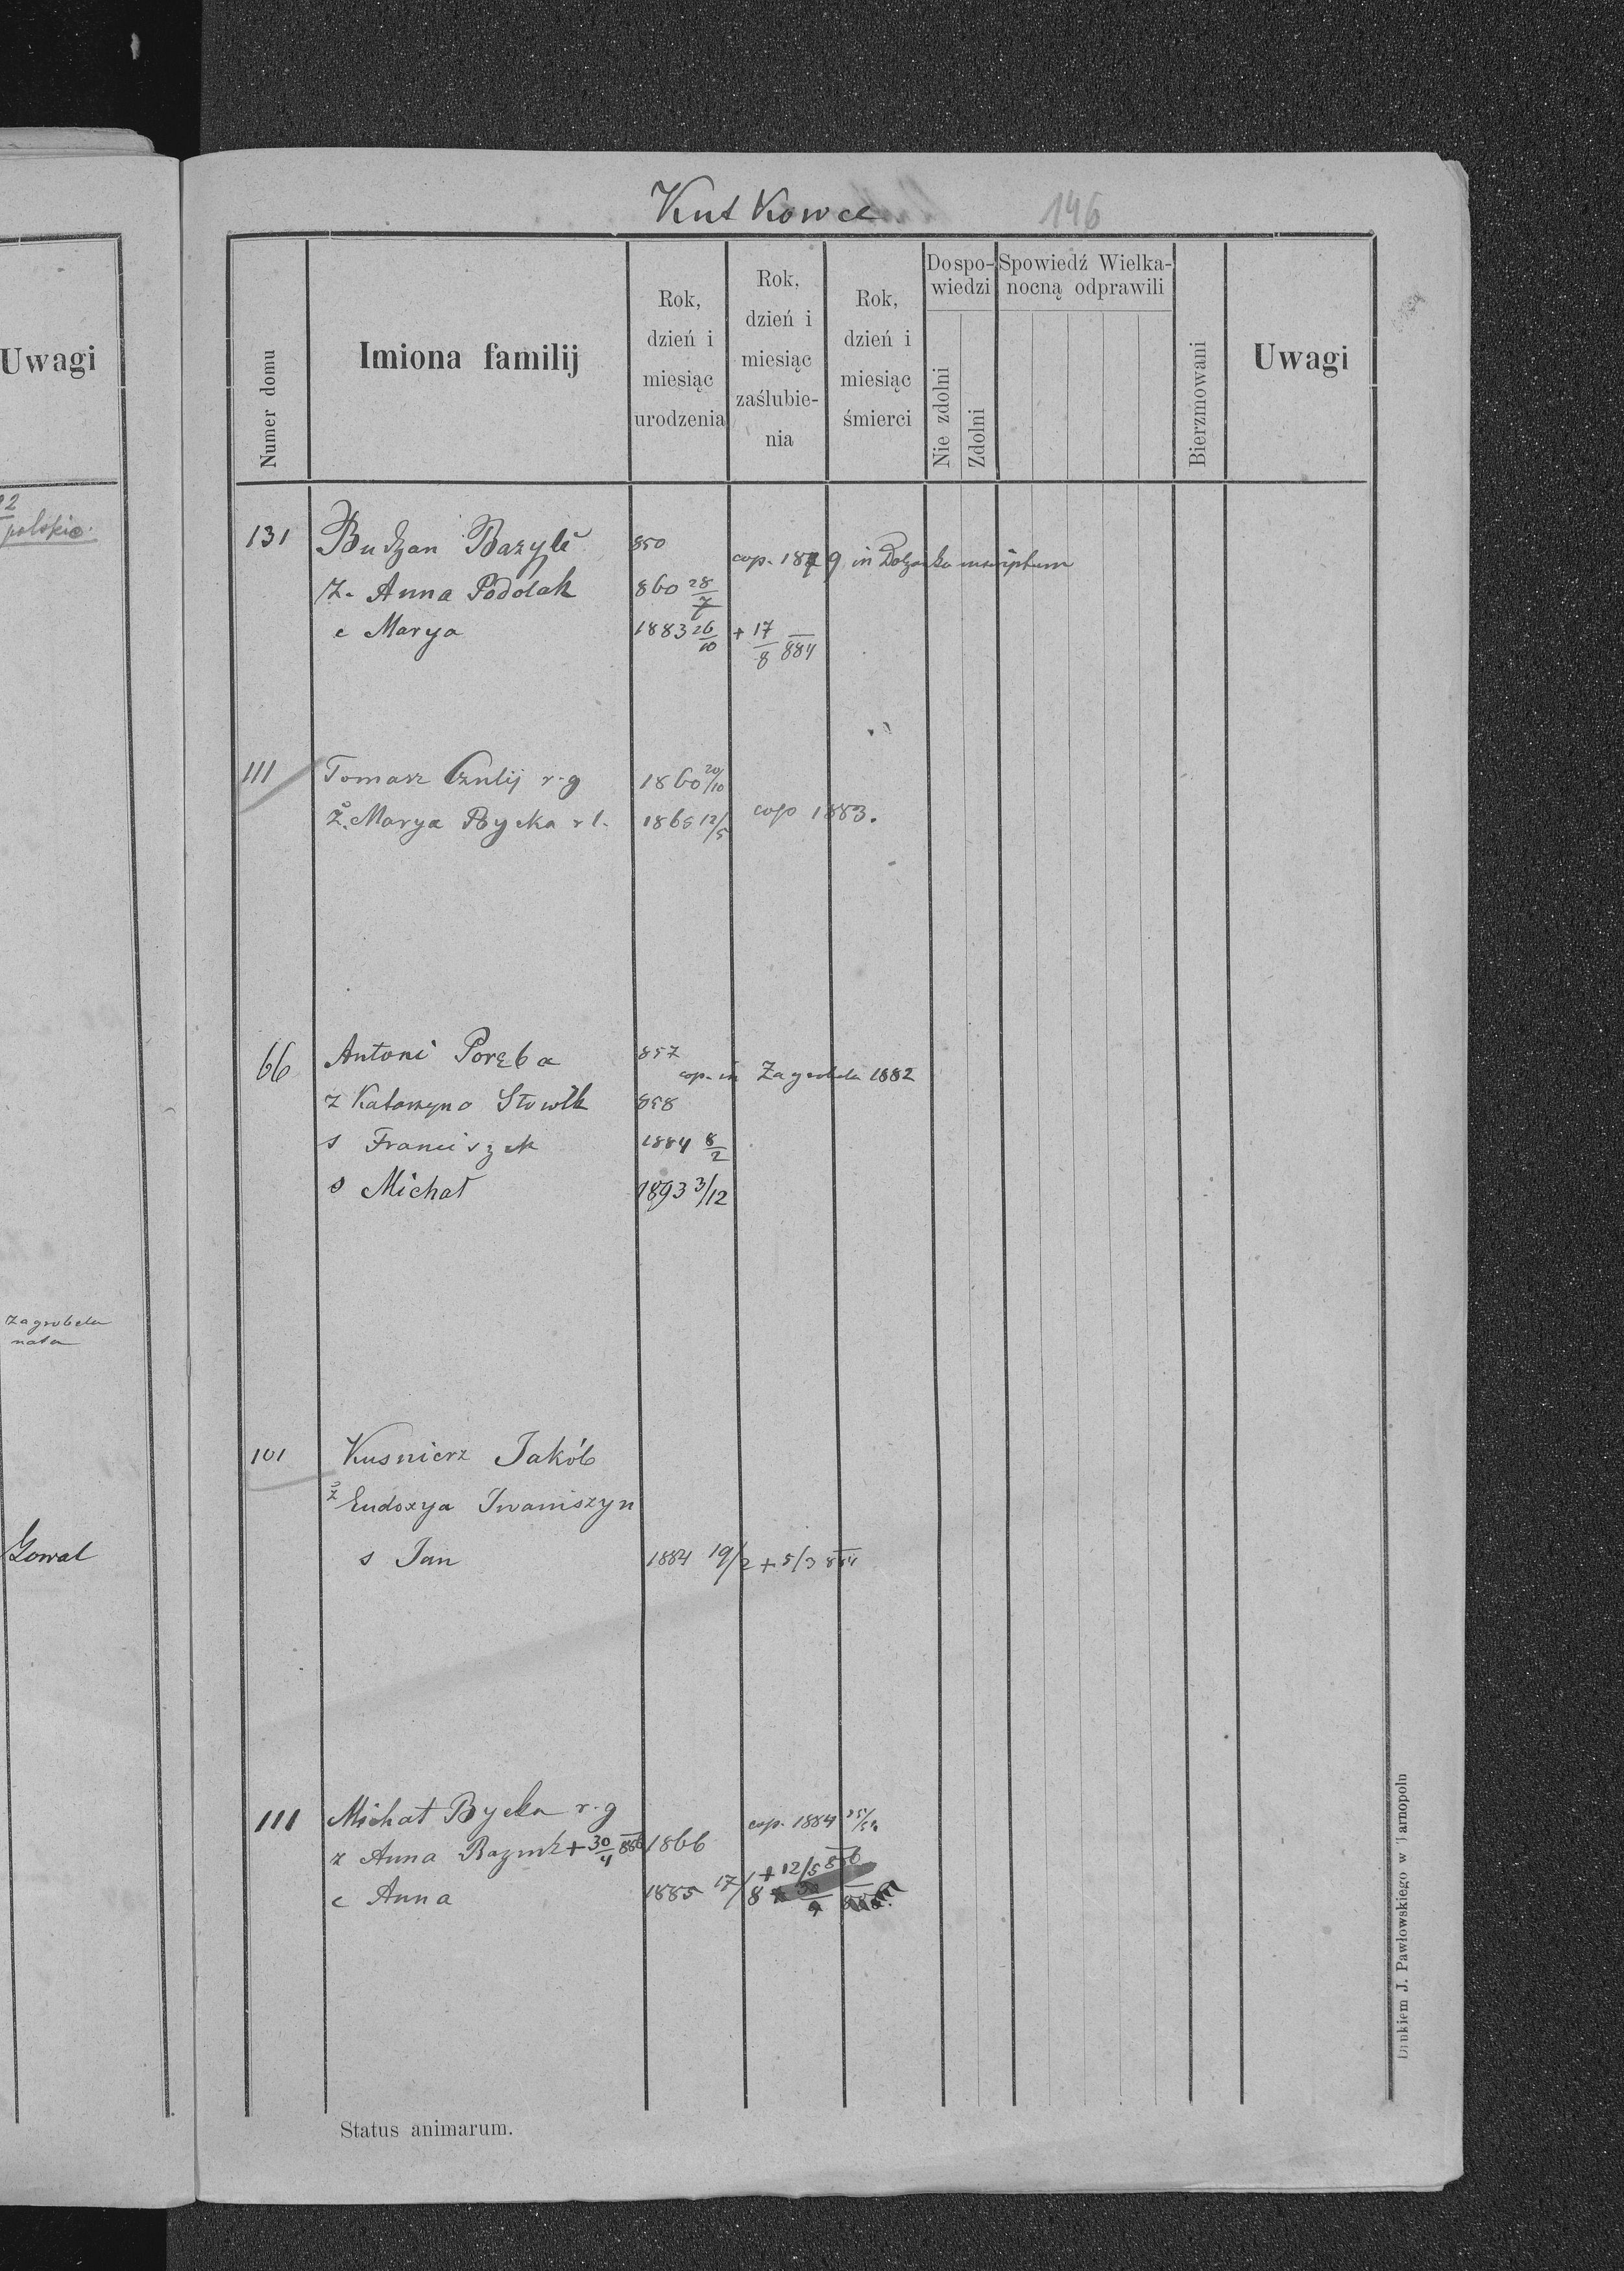 Uwagi
polskie.
Zagrobela
nata
Gowal
Kutkowce
146
Numer domu
Imiona familij
Rok, dzień i miesiąc urodzenia
Rok, dzień i miesiąc zaślubienia
Rok, dzień i miesiąc śmierci
Do spowiedzi
Nie zdolni
Zdolni
Spowiedź Wielkanocną odprawili
Bierzmowani
Uwagi
131 Budzan Bazyli 850
cop. 1879 in
ż. Anna Podolak 860 28/7
c Marya 1883 26/10 + 17/8 884
111 Tomasz Czulij r.g 1860 20/10
ż. Marya Bycka r l. 1865 12/5 cop 1883.
66 Antoni Poręba 857
cop. in Zagrobela 1882
ż Katarzyna Słowik 858
s Franciszek 1884 8/2
s Michał 1893 3/12
101 Kusnierz Jakób
ż Eudoxya Iwaniszyn
s Jan 1884 19/2 + 5/3 884
111 Michał Bycka r.g cop. 1884
ż Anna + 30/4 886 1866
c Anna 1885 17/8 + 12/5 886
Status animarum.
Drukiem J. Pawłowskiego w Tarnopolu